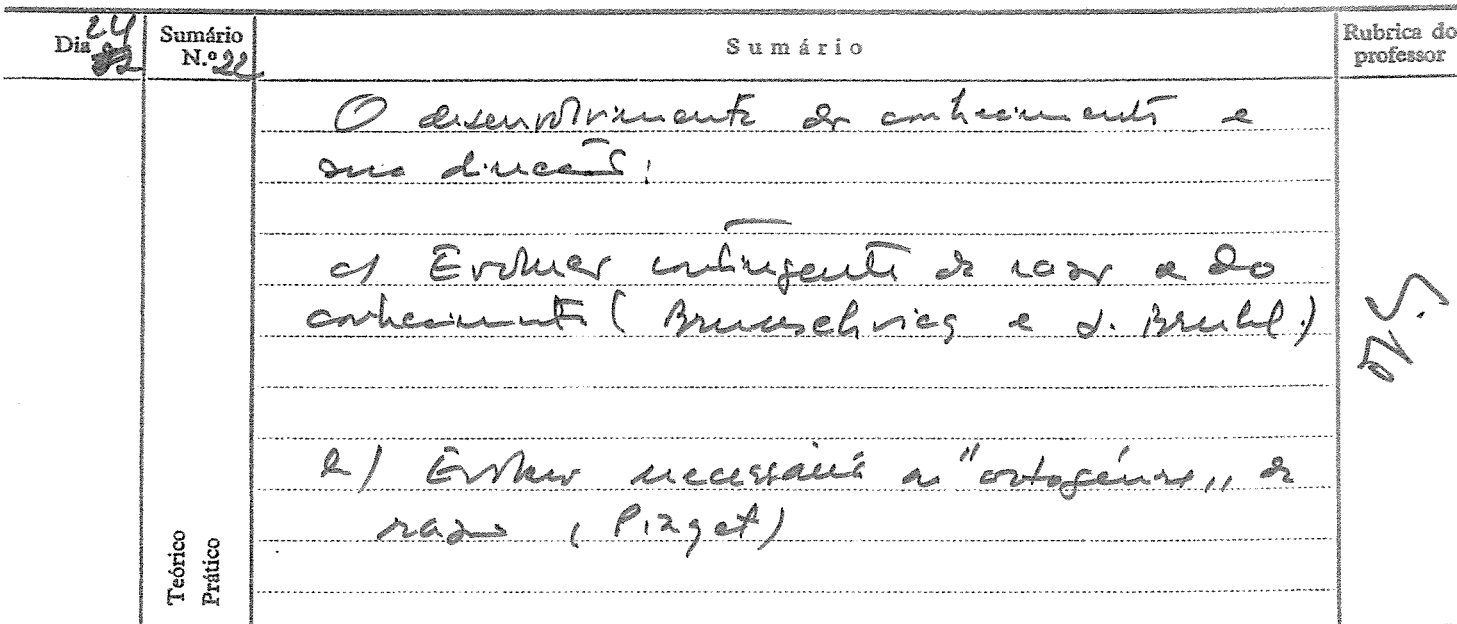 Dia 24 22
Sumário N.º 22
Sumário
Rubrica do professor
O desenvolvimento do conhecimento e
sua direcção:
a) Evolução contingente da razão e do
conhecimento (Brunschvicg e L. Bruhl.)
b) Evolução necessária ou "ortogénese" da
razão (Piaget)
Teórico
Prático